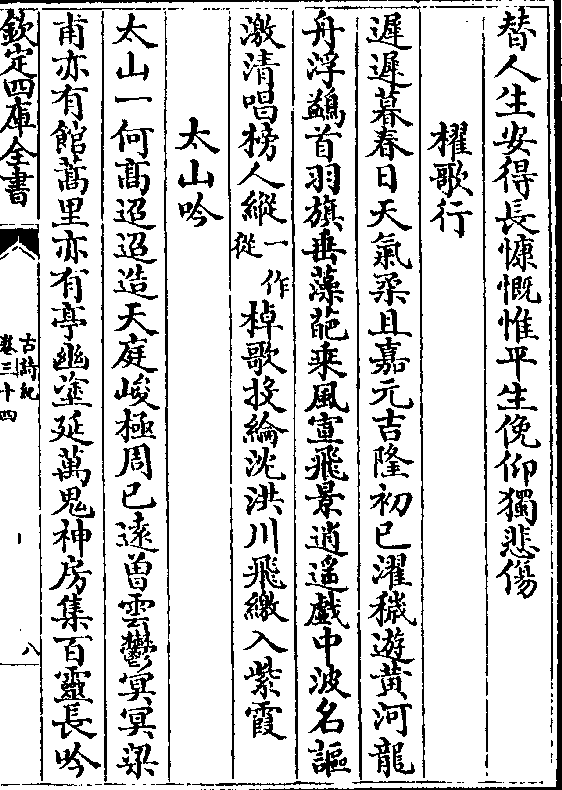 替人生安得長慷慨惟平生俛仰獨悲傷
櫂歌行
遲遲暮春日天氣柔且嘉元吉隆初巳濯穢遊黃河龍
舟浮鷁首羽旗垂藻葩乘風宣飛景逍遙戲中波名謳
激清唱榜人縱一作從棹歌投綸沈洪川飛繳入紫霞
太山吟
太山一何髙迢迢造天庭峻極周已遠曽雲鬱冥冥梁
甫亦有館蒿里亦有亭幽塗延萬鬼神房集百靈長吟
欽定四庫全書
古詩紀
卷三十四
八